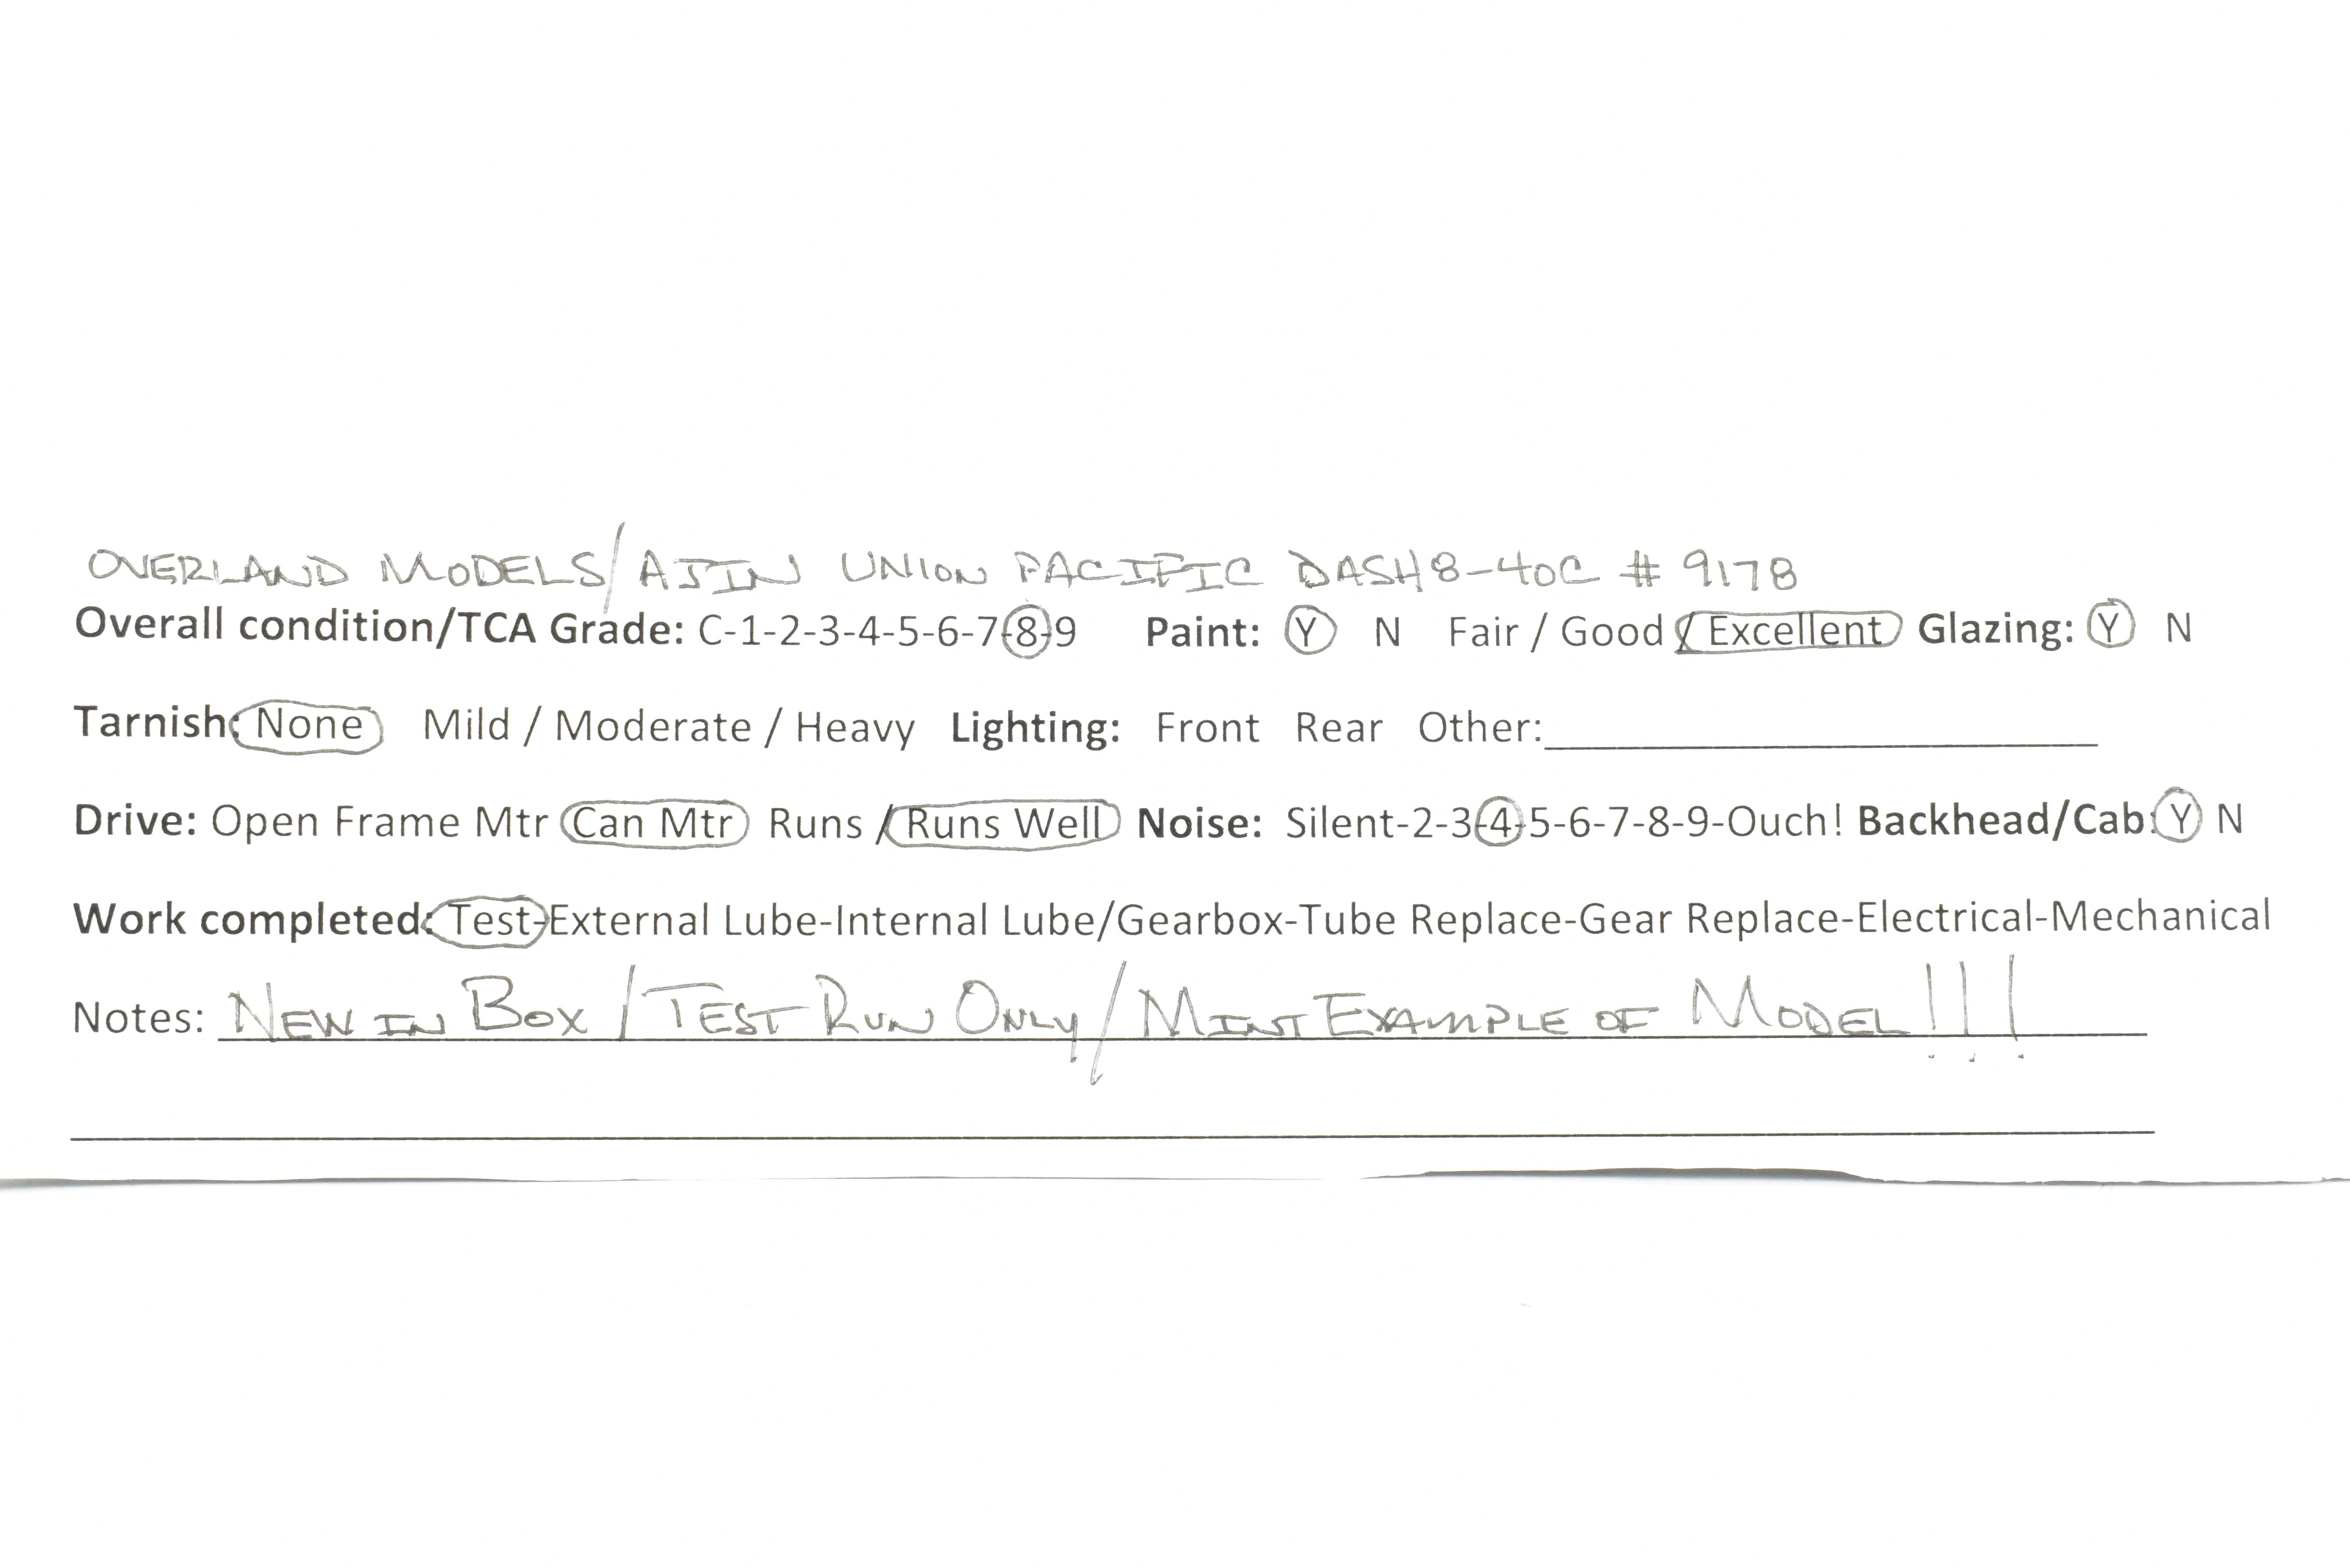 OVERLAND MODELS/AJIN UNION PACIFIC DASH8-40C # 9178
Overall condition/TCA Grade: C-1-2-3-4-5-6-7-8-9 Paint: Y N Fair / Good / Excellent Glazing: Y N
Tarnish: None Mild / Moderate / Heavy Lighting: Front Rear Other:
Drive: Open Frame Mtr Can Mtr Runs / Runs Well Noise: Silent-2-3-4-5-6-7-8-9-Ouch! Backhead/Cab: Y N
Work completed: Test-External Lube-Internal Lube/Gearbox-Tube Replace-Gear Replace-Electrical-Mechanical
Notes: NEW IN BOX / TEST RUN ONLY / MINT EXAMPLE OF MODEL!!!